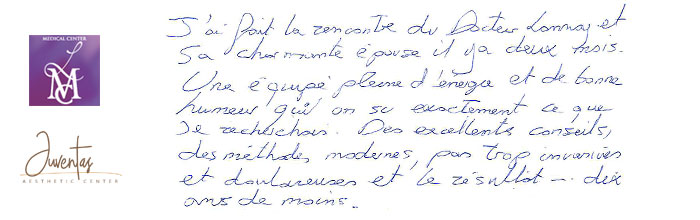 MEDICAL CENTER
LMC
Juventas
AESTHETIC CENTER
J'ai fait la rencontre du Docteur Lannoy et
sa charmante épouse il y a deux mois.
Une équipe pleine d'énergie et de bonne
humeur qui on su exactement ce que
je recherchais. Des excellents conseils,
des méthodes modernes, pas trop invasives
et douloureuses et le résultat --- dix
ans de moins.